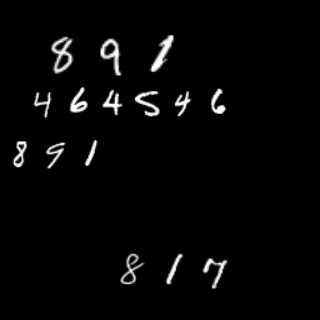 8 9 1
4 6 4 5 4 6
8 9 1
8 1 7